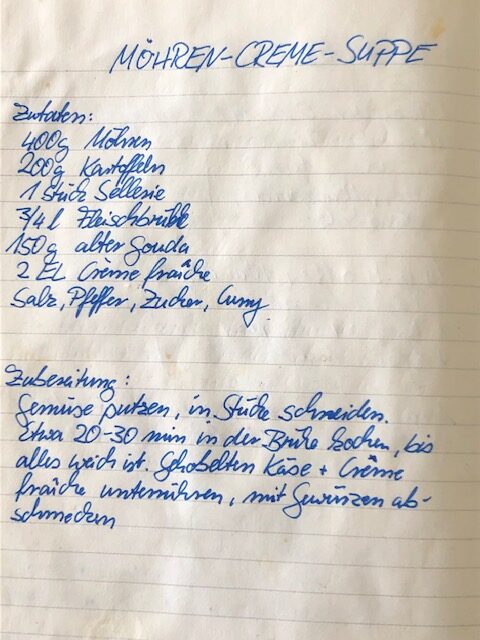 MÖHREN-CREME-SUPPE
Zutaten:
400g Möhren
200g Kartoffeln
1 Stück Sellerie
3/4 l Fleischbrühe
150g alter Gouda
2 EL Crème fraîche
Salz, Pfeffer, Zucker, Curry
Zubereitung:
Gemüse putzen, in Stücke schneiden.
Etwa 20-30 min in der Brühe kochen, bis
alles weich ist. Gehobelten Käse + Crème
fraîche unterrühren, mit Gewürzen ab-
schmecken